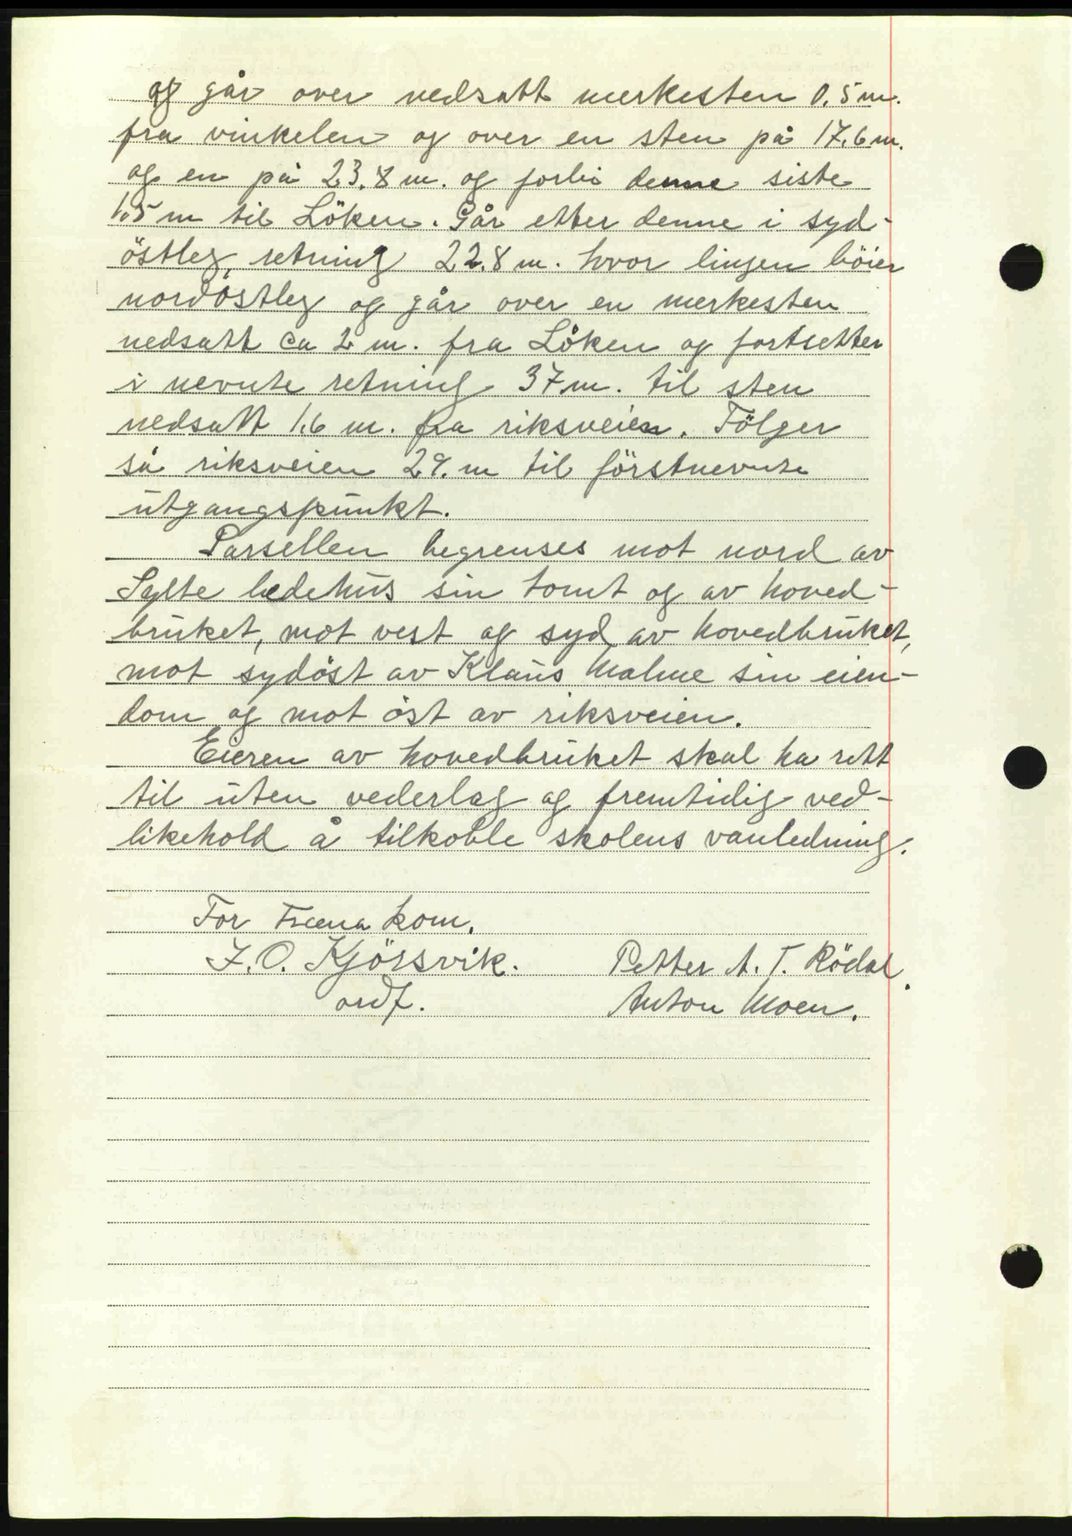 og går over nedsatt merkesten 0,5 m.
fra vinkelen og over en sten på 17,6 m.
og en på 23,8 m. og forbi denne siste
1,5 m til Löken. Går etter denne i syd-
östleg retning 22,8 m. hvor linjen böier
nordöstleg og går over en merkesten
nedsatt ca 2 m. fra Löken og fortsetter
i nevnte retning 37 m. til sten
nedsatt 1,6 m. fra riksveien. Fölger
så riksveien 29. m til förstnevnte
utgangspunkt.
Parsellen begrenses mot nord av
Sylte bedehus sin tomt og av hoved-
bruket, mot vest og syd av hovedbruket,
mot sydöst av Klaus Malme sin eien-
dom og mot öst av riksveien.
Eieren av hovedbruket skal ha rett
til uten vederlag og fremtidig ved-
likehold å tilkoble skolens vanledning.
For Fræna kom.
J. O. Kjörsvik. Petter A. T. Rödal.
ordf. Anton Moen.